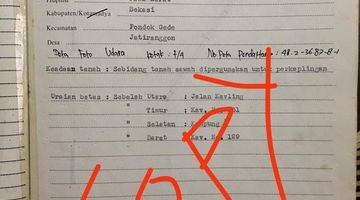 Propinsi
Kabupaten/Kotamadya : Bekasi
Kecamatan Pondok Gede
Desa Jatiranggon
Peta Foto Udara kotak : f/4 No Peta Pendaftaran : 48.2-36.82-8-1
Keadaan tanah : Sebidang tanah sawah dipergunakan untuk perkaplingan
Uraian batas : Sebelah Utara : Jalan Kavling
" Timur : Kav. No.
" Selatan : Kampung
" Barat : Kav. No. 199